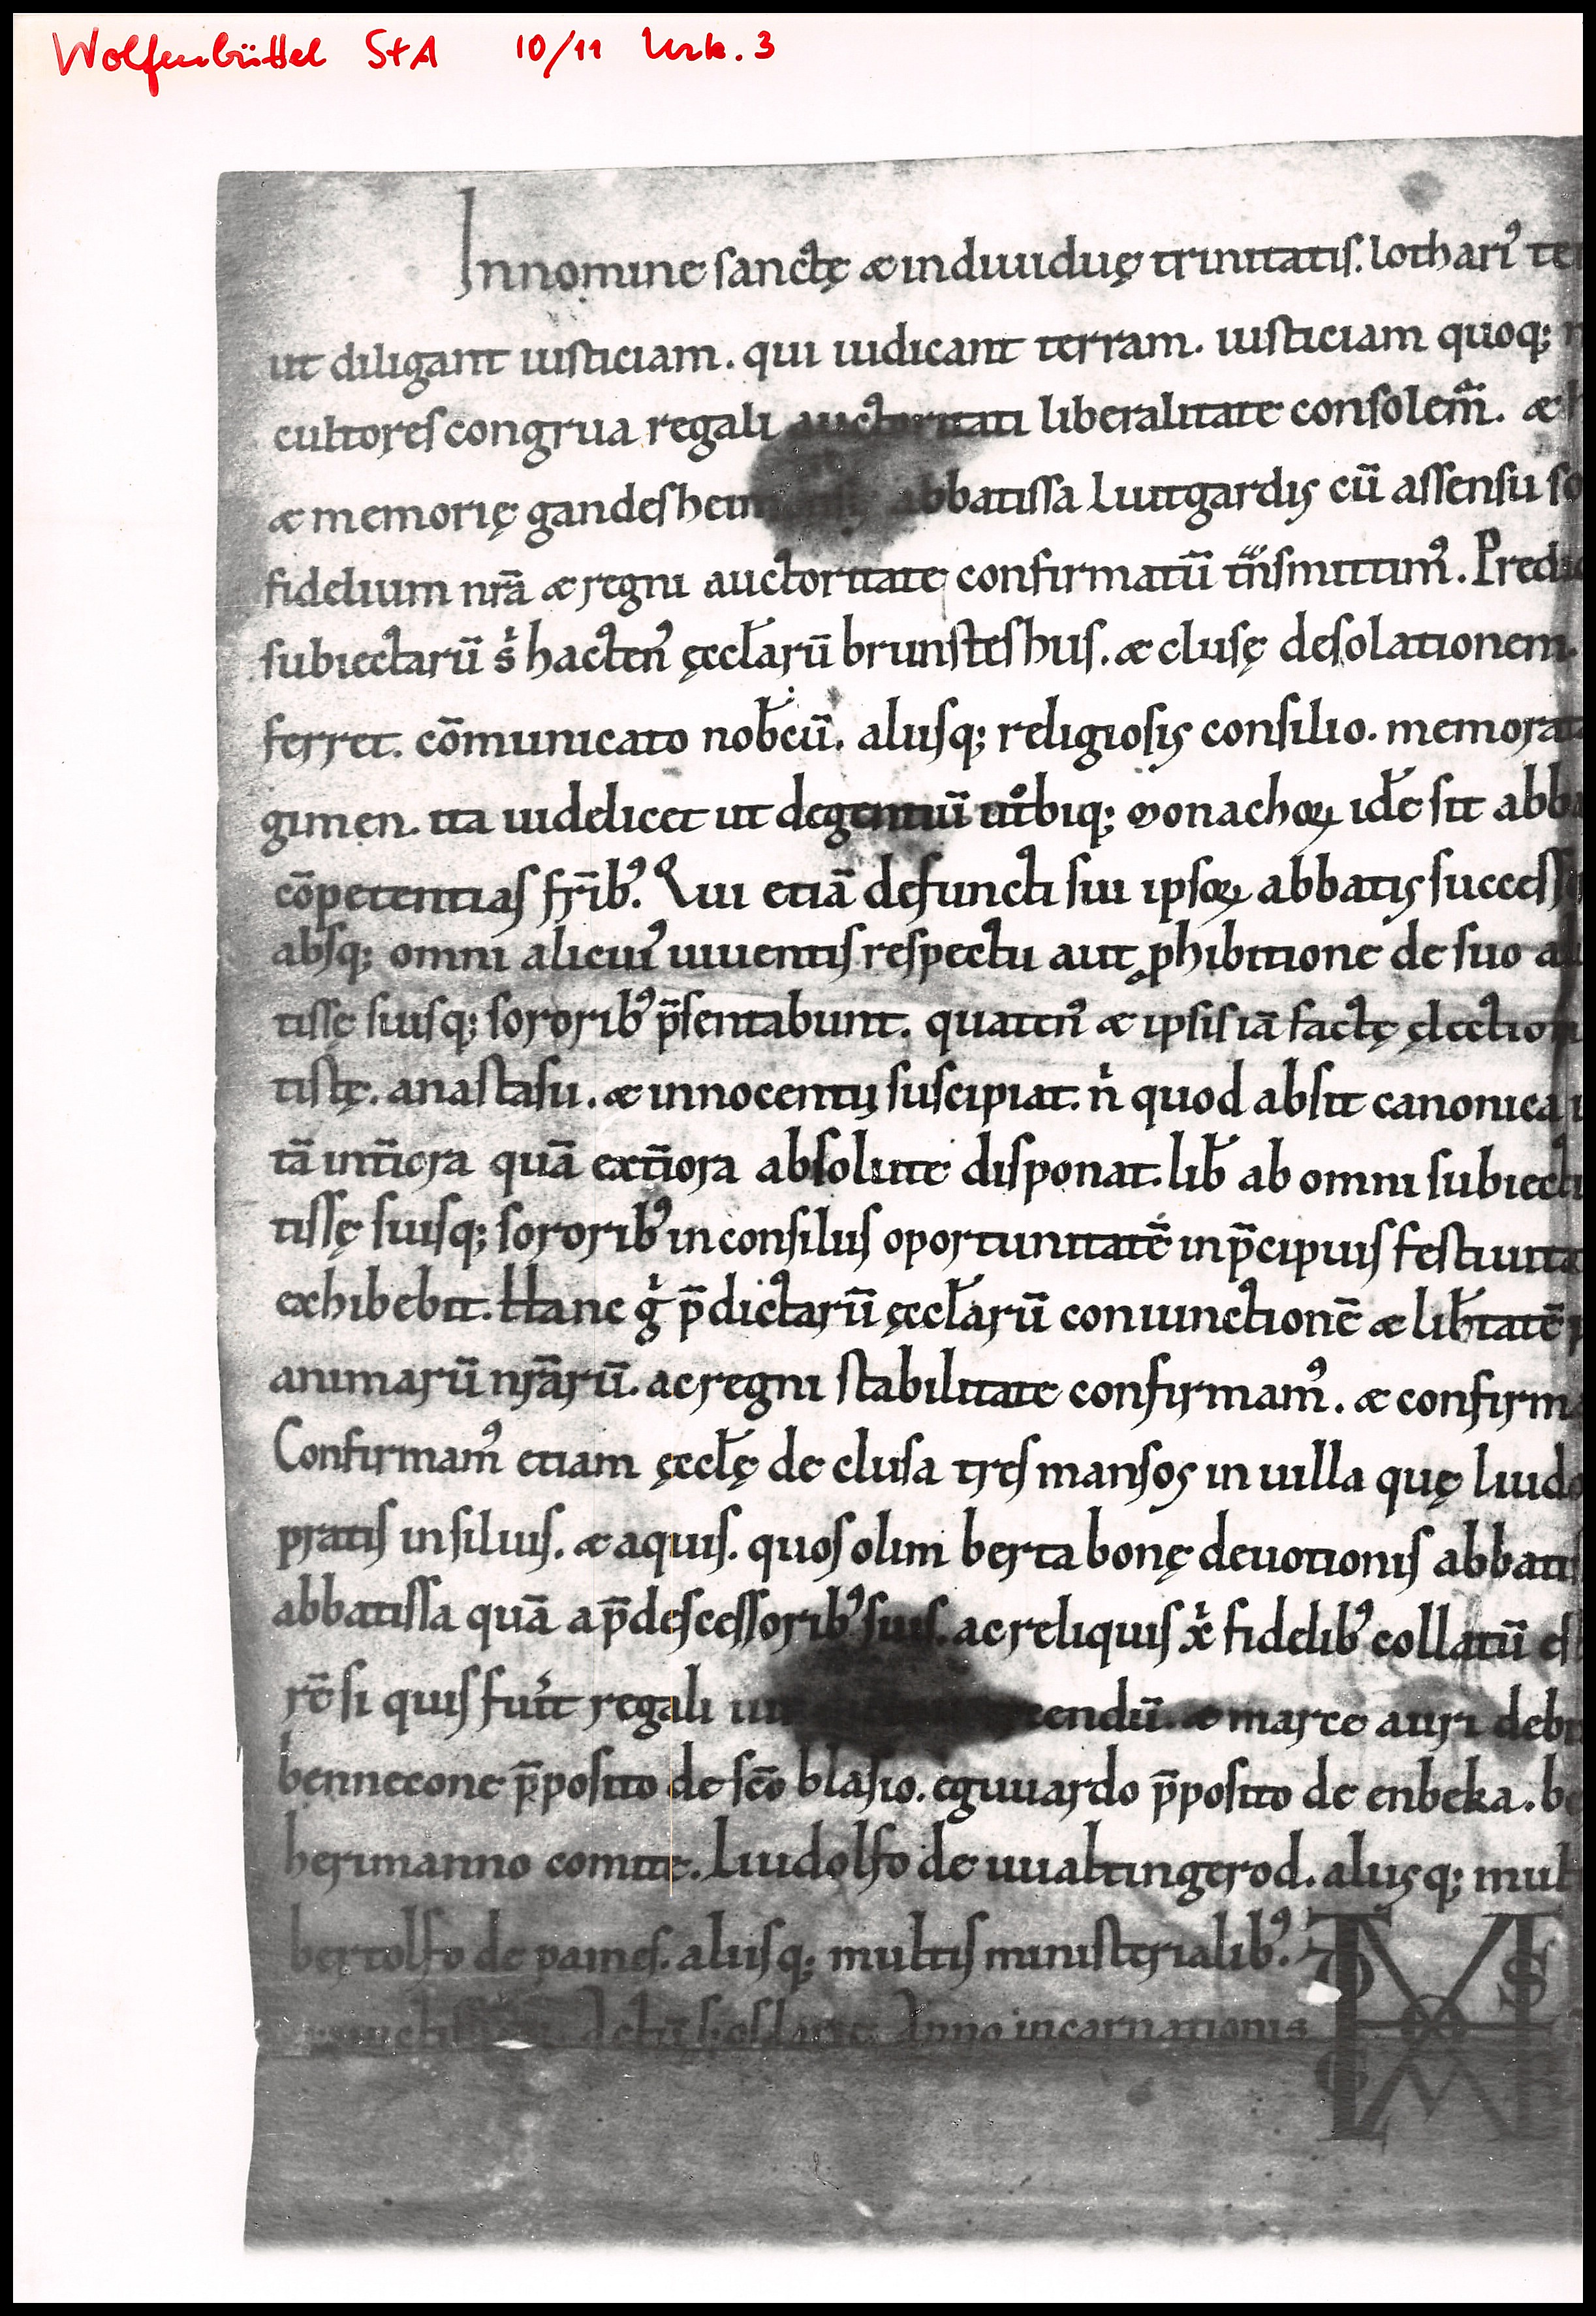 Wolfenbüttel StA 10/11 Urk. 3
Innomine sanctę & indiuiduę trinitatis. lothariꝰ te
ut diligant iusticiam. qui iudicant terram. iusticiam quoq;
cultores congrua regali auctoritati liberalitate consolem̄. &
& memorię gandeshei abbatissa Liutgardis cū assensu so
fidelium nr̄a & regni auctoritate confirmatū tn̄smittimꝰ. Predic
subiectarū s hactenꝰ ęccl̄arū brunsteshus. & clusę desolationem.
ferret. cōmunicato nob̄cū. aliisq; religiosis consilio. memorat
gimen. ita uidelicet ut degentiū utbiq; monachoꝝ idē sit abba
cōpetentias fr̄ibꝰ. Qui etiā defuncti sui ipsoꝝ abbatis success
absq; omni alicuiꝰ uiuentis respectu aut ꝓhibitione de suo a
tissę suisq; sororibꝰ p̄sentabunt. quatenꝰ & ipsis iā factę electio
tistę. anastasii. & innocentii suscipiat. n quod absit canonica
tā int̄iora quā ext̄iora absolute disponat. lib̄ ab omni subiecti
tissę suisq; sororibꝰ in consiliis oportunitatē in p̄cipuis festiuita
exhibebit. Hanc g p̄dictarū ęccl̄arū coniunctionē & lib̄tatē p
animarū nr̄arū. ac regni stabilitate confirmamꝰ. & confirma
Confirmamꝰ etiam ęccl̄ę de clusa tres mansos in uilla quę liudo
pratis in siluis. & aquis. quos olim berta bonę deuotionis abbatis
abbatissa quā a p̄decessoribꝰ suis. ac reliquis x fidelibꝰ collatū es
rē si quis fuīt regali endū. & marce auri deb
bennecone p̄posito de sc̄o blasio. eguuardo p̄posito de enbeka. be
herimanno comite. Liudolfo de uualtingerod. aliisq; mul
bertolfo de paines. aliisq; multis ministerialibꝰ.
Anno incarnationis